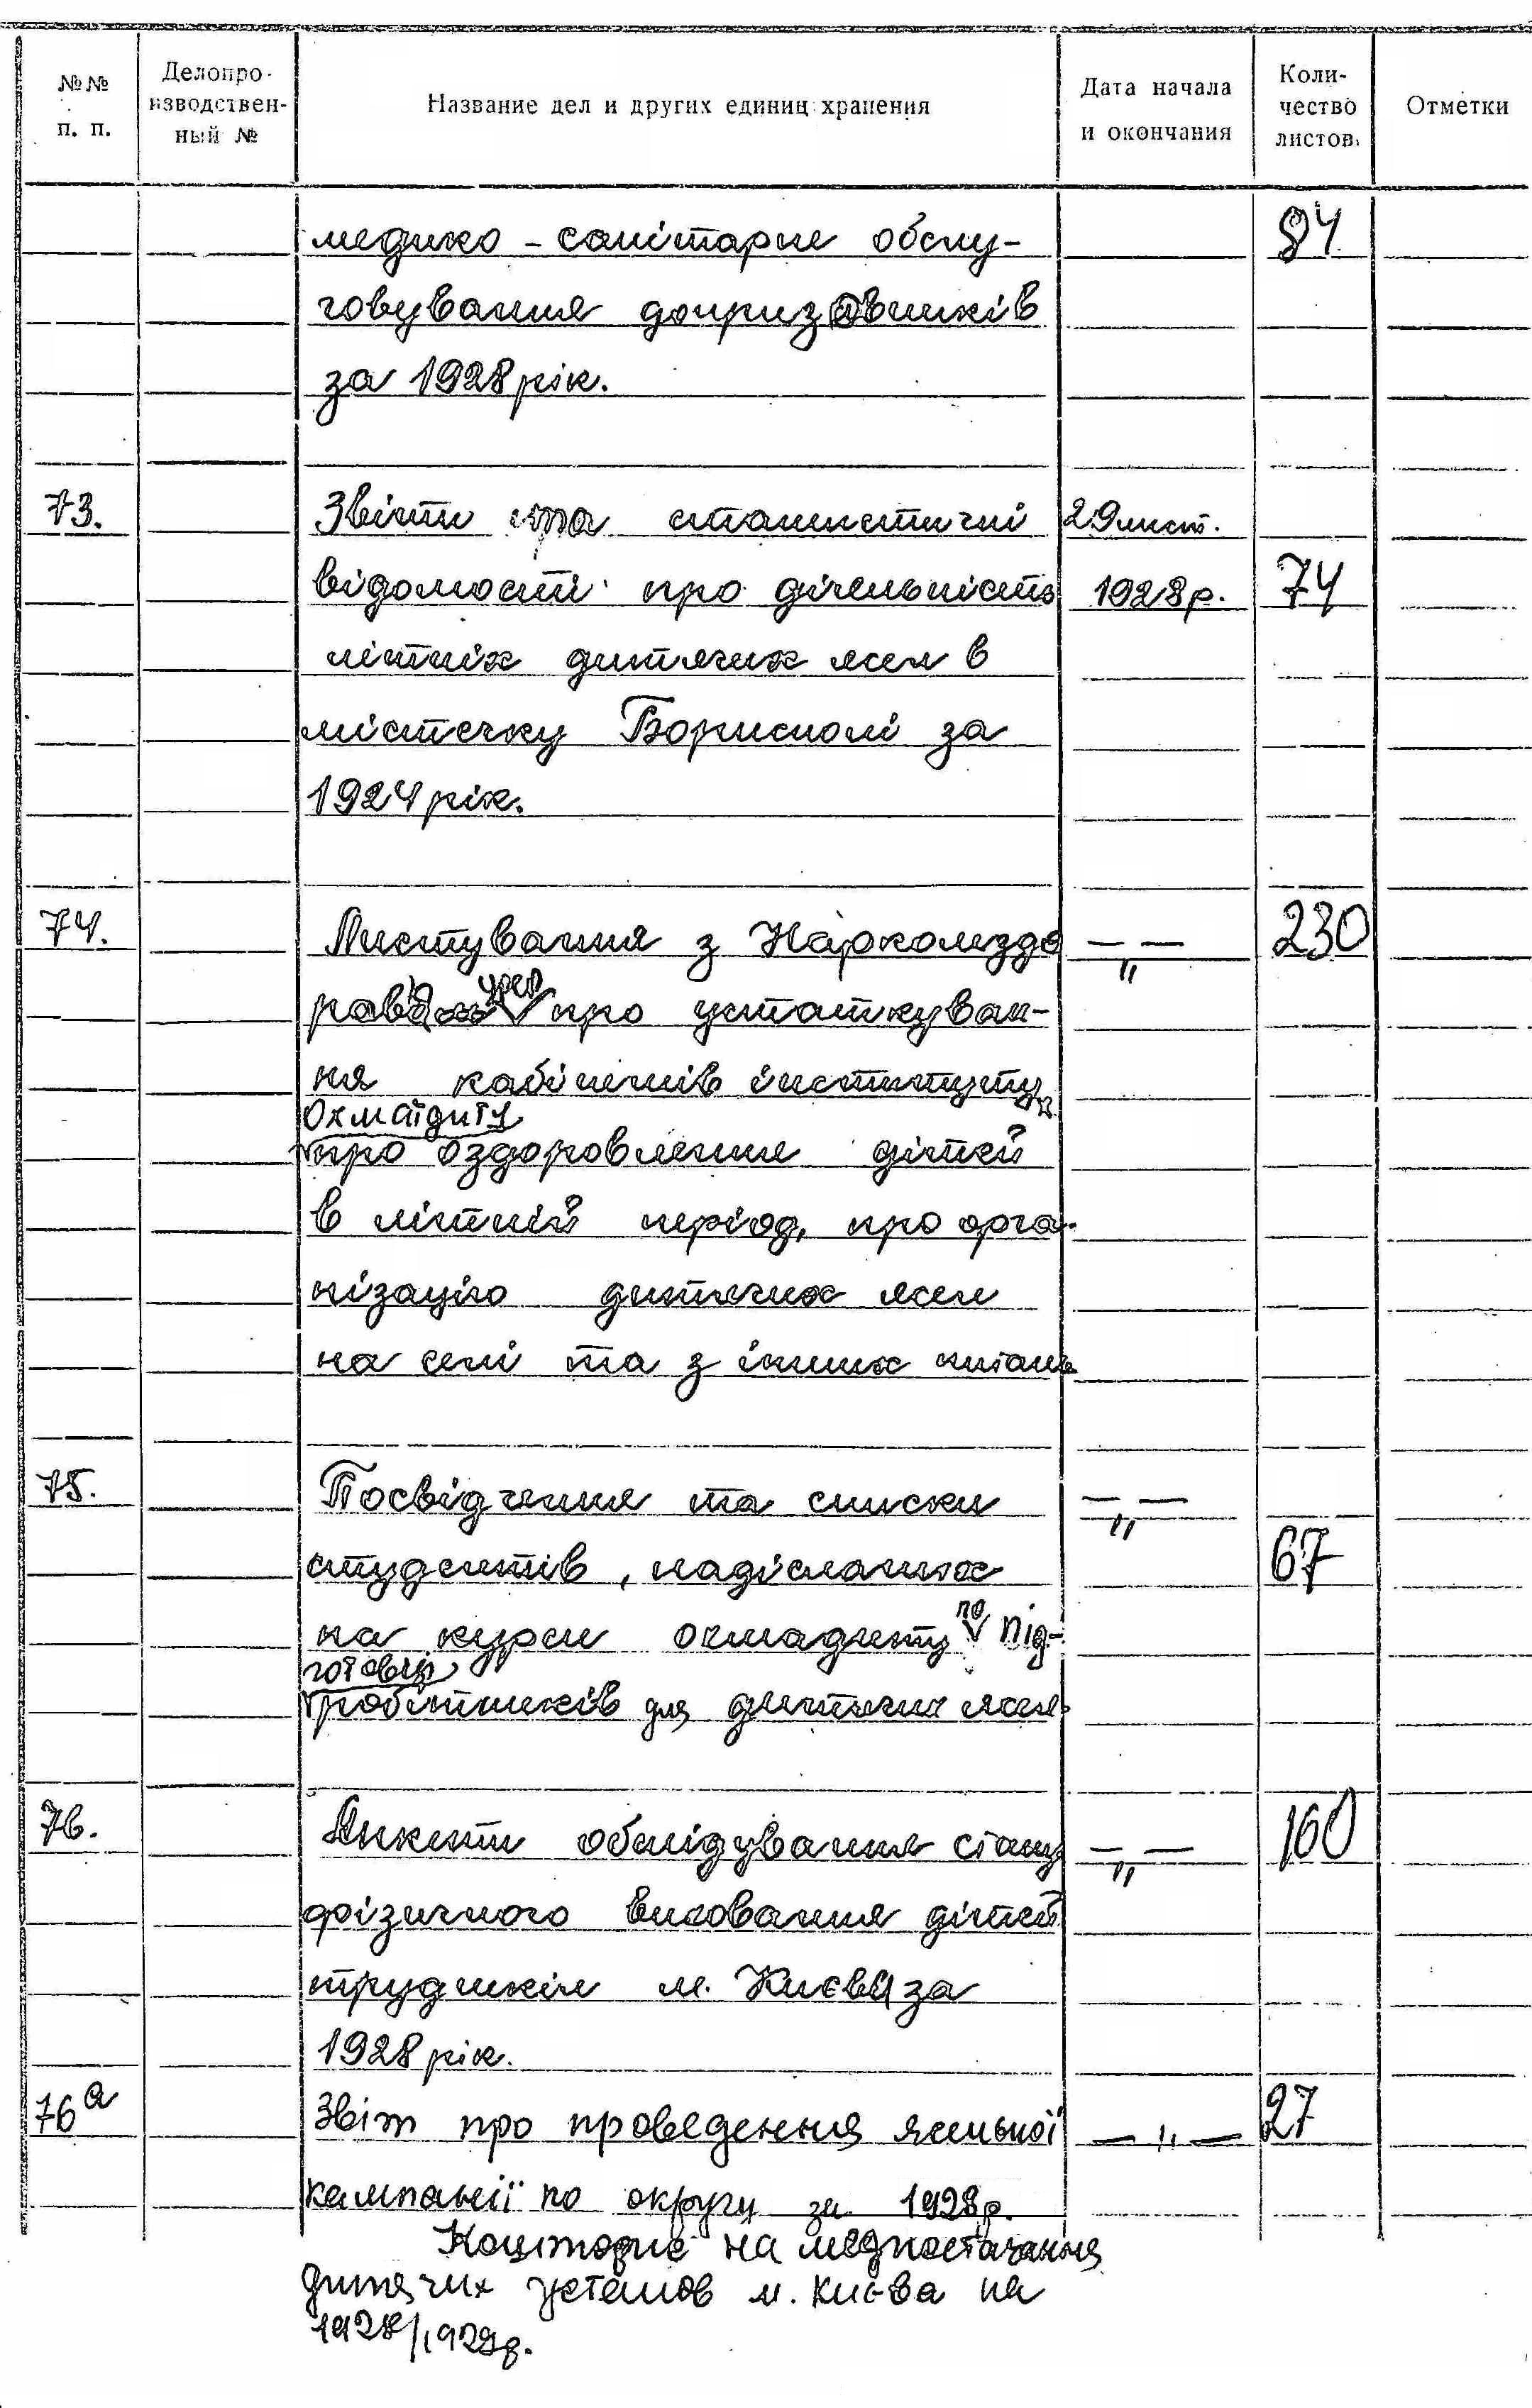 №№ п. п.
Делопро-
изводствен-
ный №
Название дел и других единиц хранения
Дата начала
и окончания
Коли-
чество
листов
Отметки
медико - санітарне обслу- 84
говування допризовників
за 1928 рік.
73. Звіти та статистичні 29 лист.
відомості про діяльність 1928 р. 74
літніх дитячих ясел в
містечку Борисполі за
1924 рік.
74. Листування з Наркомздо — „ — 230
ров'я УРСР про устаткуван-
ня кабінетів інституту
Охматдиту
про оздоровлення дітей
в літній період, про орга-
нізацію дитячих ясел
на селі та з інших питань
75. Посвідчення та списки — „ —
студентів, надісланих 67
на курси охмадиту по під-
готовці
робітників для дитячих ясел
76. Анкети обслідування стану — „ — 160
фізичного виховання дітей
трудшкіл м. Києва за
1928 рік.
76а Звіт про проведення ясельної — „ — 27
кампанії по округу за 1928 р.
Кошторис на медпостачання
дитячих установ м. Києва на
1928/1929р.